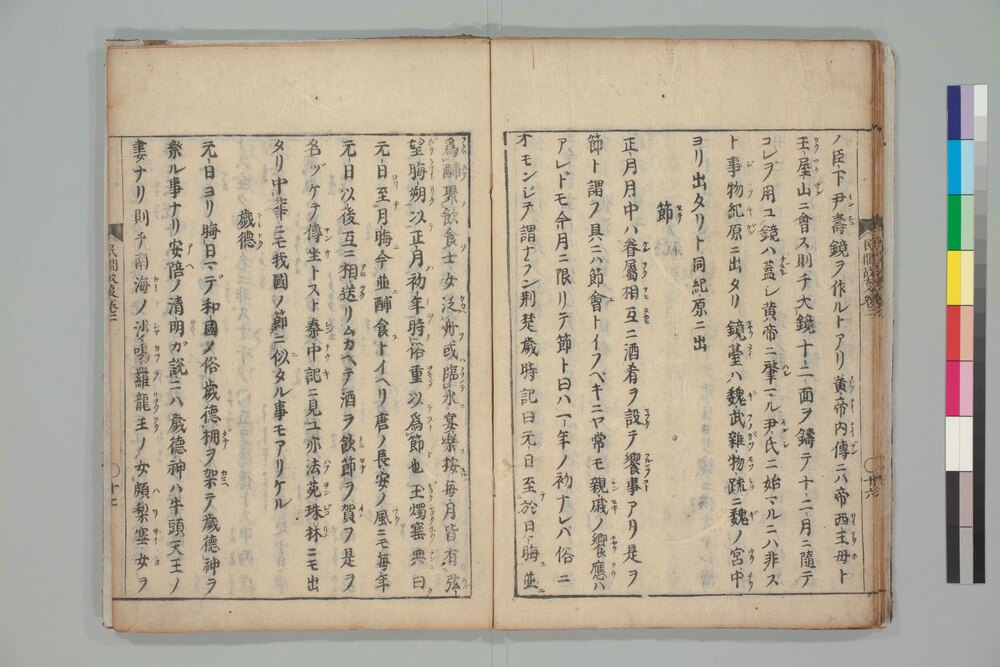 ノ臣下尹壽鏡ヲ作ルトアリ黄帝内傳ニハ帝西王母ト
王屋山ニ會ス則チ大鏡十二面ヲ鑄テ十二月ニ隨テ
コレヲ用ユ鏡ハ蓋シ黄帝ニ肇マル尹氏ニ始マルニハ非ズ
ト事物紀原ニ出タリ 鏡臺ハ魏武雜物疏ニ魏ノ宮中
ヨリ出タリト同紀原ニ出
節
正月月中ハ眷屬相互ニ酒肴ヲ設テ饗事アリ是ヲ
節ト謂フ具ニハ節會トイフベキニヤ常モ親戚ノ饗應ハ
アレドモ余月ニ限リテ節ト曰ハ一年ノ初ナレバ俗ニ
オモンジテ謂ナラン荆楚歳時記曰元日至於月晦並
為酺聚飲食士女泛舟或臨水宴樂按毎月皆有弦
望晦朔以正月初年時俗重以為節也玉燭寳典曰
元日至月晦今並酺食トイヘリ唐ノ長安ノ風ニモ毎年
元日以後互ニ相送リムカヘテ酒ヲ飲節ヲ賀フ是ヲ
名ヅケテ傳坐トスト秦中記ニ見ユ亦法苑珠林ニモ出
タリ中華ニモ我國ノ節ニ似タル事モアリケル
歳德
元日ヨリ晦日マデ和國ノ俗歳德棚ヲ架テ歳德神ヲ
祭ル事ナリ安陪ノ清明ガ説ニハ歳德神ハ牛頭天王ノ
妻ナリ則チ南海ノ沙竭羅龍王ノ女頗梨塞女ヲ